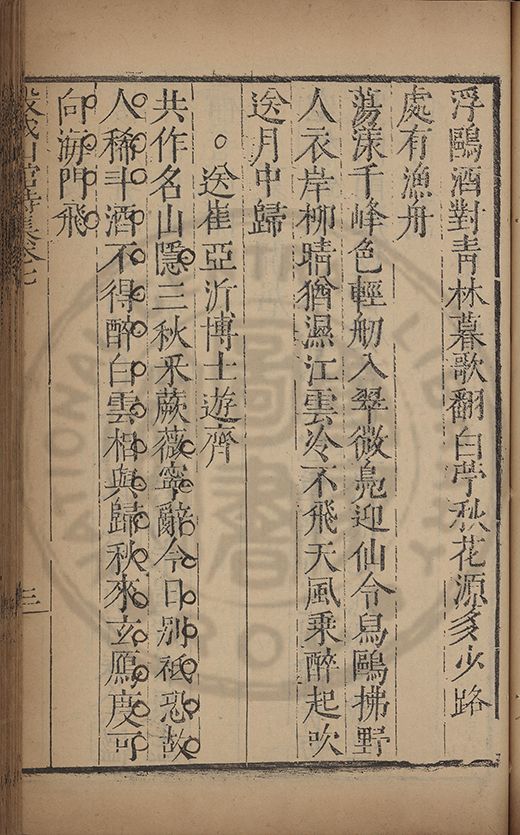 浮鷗酒對青林暮歌翻白苧秋花源多少路
處有漁舟
蕩漾千峰色輕舠入翠微鳧迎仙令舄鷗拂野
人衣岸柳晴猶濕江雲冷不飛天風乘醉起吹
送月中歸
。送崔亞沂博士遊齊
共作名山隱三秋采蕨薇寧辭今日別祗恐故
人稀斗酒不得醉白雲相與歸秋來玄鴈度可
向海門飛
三